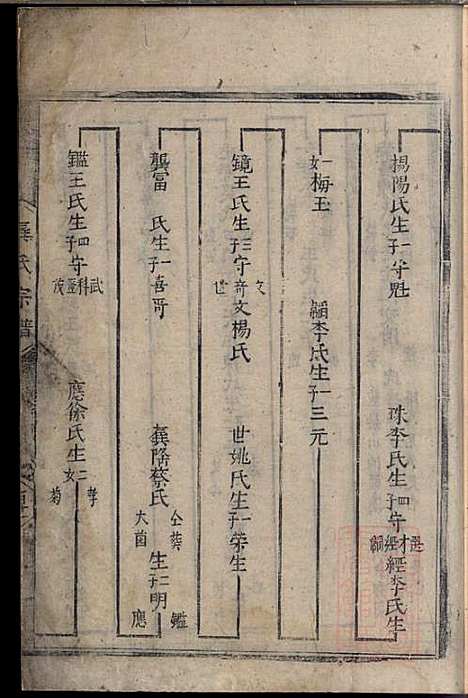 揚陽氏生子一守魁
珠李氏生子四守
經李氏生
一女梅玉
李氏生子一三元
鏡王氏生子三守
文奇世
文楊氏
世姚氏生子一榮生
龔富
氏生子一喜哥
龔隆蔡氏
仝葬大酉
生子二明
鑑應
鑑王氏生子四守
武科
應徐氏生
二女
菊
龔氏宗譜